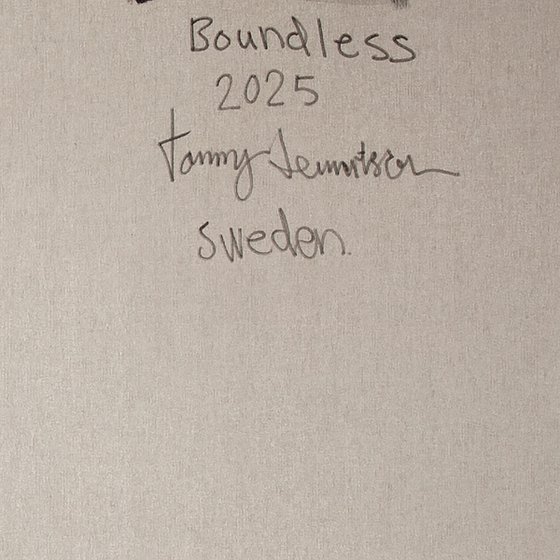 Boundless
2025
Tommy
Sweden.